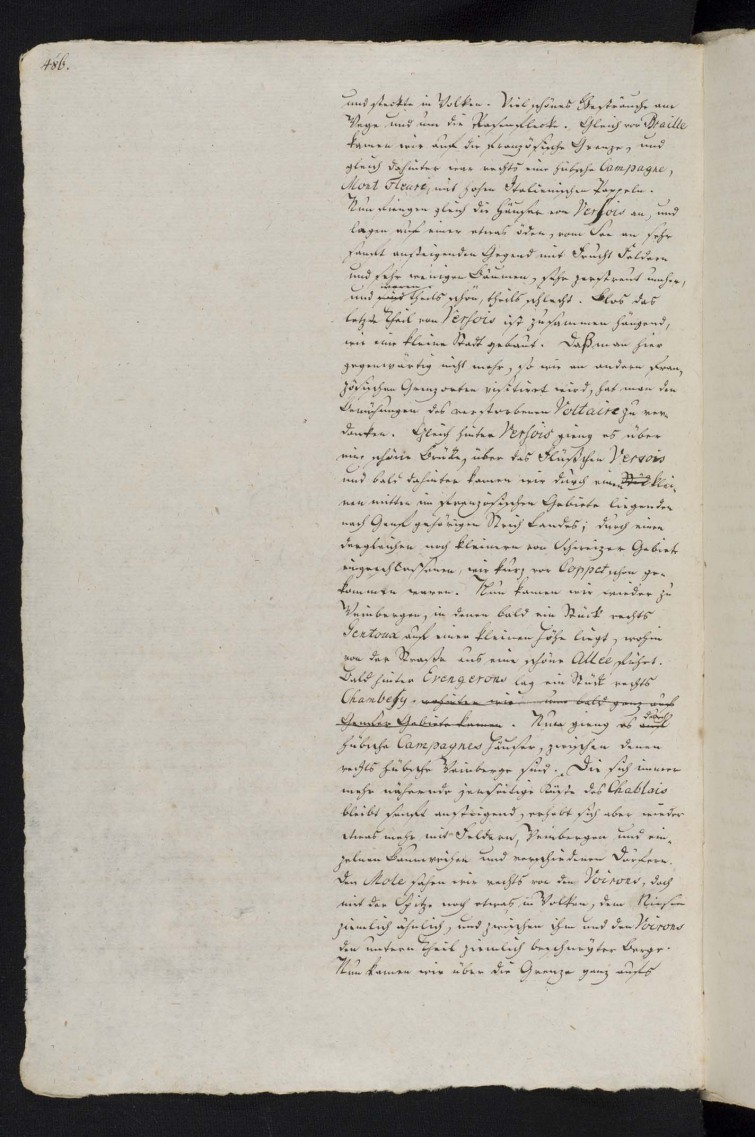 486.
und steckte in Wolken. Viel schönes Gesträuche am
Wege und um die Rasenflecke. Gleich vor Braille
kamen wir auf die französische Grenze, und
gleich dahinter war rechts eine hübsche Campagne,
Mont Fleuri, mit hohen Italienischen Pappeln.
Nun fiengen gleich die Häuser von Versois an, und
lagen auf einer etwas öden, vom See an sehr
sanft ansteigenden Gegend mit Frucht Feldern
und sehr wenigen Bäumen, sehr zerstreut umher,
und sind waren theils schön, theils schlecht. Blos das
letzte Theil von Versois ist zusammen hängend,
wie eine kleine Stadt gebaut. Daß man hier
gegenwärtig nicht mehr, so wie an andern Fran„
zösischen Grenzorten visitirt wird, hat man den
Bemühungen des verstorbenen Voltaire zu ver„
danken. Gleich hinter Versois gieng es über
eine schöne Brücke, über das Flüßchen Versois
und bald dahinter kamen wir durch einen Stück klei„
nen mitten im französischen Gebiete liegenden
nach Genf gehörigen Strich Landes; durch einen
dergleichen noch kleinern von Schweizer Gebiete
eingeschlossenen, wir kurz vor Coppet schon ge„
kommen waren. Nun kamen wir wieder zu
Weinbergen, in denen bald ein Stück rechts
Gentoux auf einer kleinen Höhe liegt, wohin
von der Straße aus eine schöne Allée führt.
Bald hinter Crengerons lag ein Stück rechts
Chambesy, wohinter wir nun bald ganz aufs
Genfer Gebiete kamen. Nun gieng es auf durch
hübsche Campagnes Häuser, zwischen denen
rechts hübsche Weinberge sind. Die sich immer
mehr nähernde jenseitige Küste des Chablais
bleibt sanft ansteigend, erhebt sich aber wieder
etwas mehr mit Feldern, Weinbergen und ein„
zelnen Baumreihen und verschiedenen Dörfern.
Den Mole sahen wir rechts von den Voirons, doch
mit der Spitze noch etwas in Wolken, dem Niesen
ziemlich ähnlich, und zwischen ihm und den Voirons
den untern Theil ziemlich beschneyter Berge.
Nun kamen wir über die Grenze ganz aufs